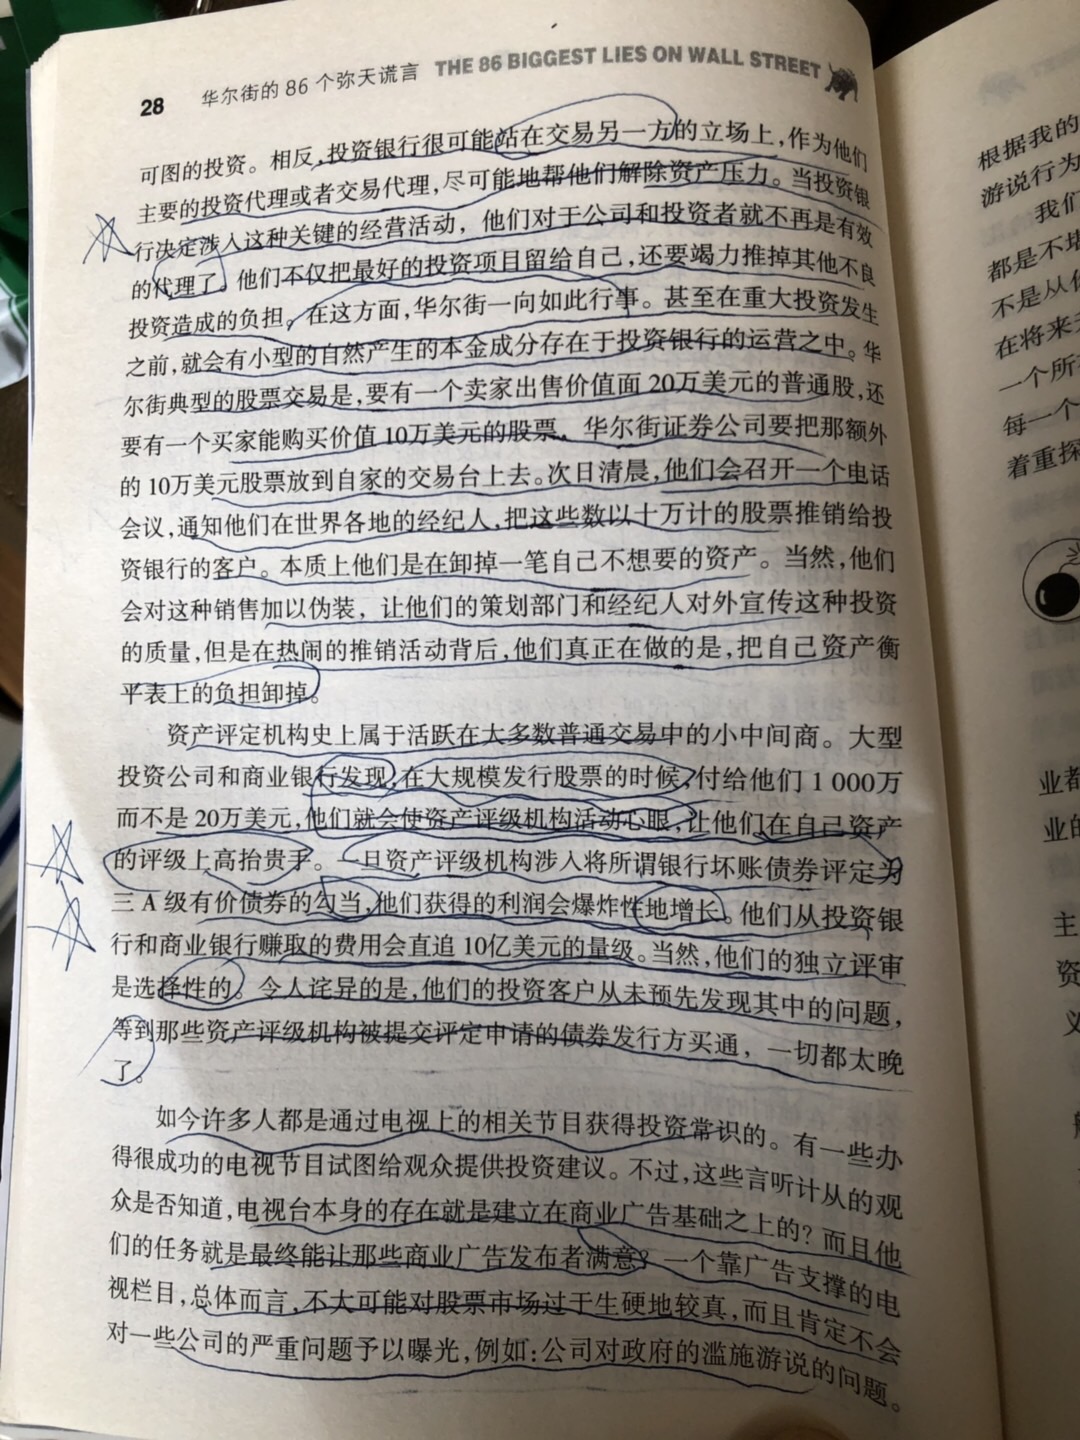 28 华尔街的86个弥天谎言 THE 86 BIGGEST LIES ON WALL STREET
可图的投资。相反,投资银行很可能站在交易另一方的立场上,作为他们
主要的投资代理或者交易代理,尽可能地帮他们解除资产压力。当投资银
行决定涉入这种关键的经营活动，他们对于公司和投资者就不再是有效
的代理了。他们不仅把最好的投资项目留给自己,还要竭力推掉其他不良
投资造成的负担。在这方面,华尔街一向如此行事。甚至在重大投资发生
之前,就会有小型的自然产生的本金成分存在于投资银行的运营之中。华
尔街典型的股票交易是,要有一个卖家出售价值面20万美元的普通股,还
要有一个买家能购买价值10万美元的股票。华尔街证券公司要把那额外
的10万美元股票放到自家的交易台上去。次日清晨,他们会召开一个电话
会议,通知他们在世界各地的经纪人,把这些数以十万计的股票推销给投
资银行的客户。本质上他们是在卸掉一笔自己不想要的资产。当然,他们
会对这种销售加以伪装，让他们的策划部门和经纪人对外宣传这种投资
的质量,但是在热闹的推销活动背后,他们真正在做的是,把自己资产衡
平表上的负担卸掉。
资产评定机构史上属于活跃在大多数普通交易中的小中间商。大型
投资公司和商业银行发现,在大规模发行股票的时候,付给他们1 000万
而不是20万美元,他们就会使资产评级机构活动心眼,让他们在自己资产
的评级上高抬贵手。一旦资产评级机构涉入将所谓银行坏账债券评定为
三A级有价债券的勾当,他们获得的利润会爆炸性地增长。他们从投资银
行和商业银行赚取的费用会直追10亿美元的量级。当然,他们的独立评审
是选择性的。令人诧异的是,他们的投资客户从未预先发现其中的问题,
等到那些资产评级机构被提交评定申请的债券发行方买通，一切都太晚
了。
如今许多人都是通过电视上的相关节目获得投资常识的。有一些办
得很成功的电视节目试图给观众提供投资建议。不过,这些言听计从的观
众是否知道,电视台本身的存在就是建立在商业广告基础之上的?而且他
们的任务就是最终能让那些商业广告发布者满意?一个靠广告支撑的电
视栏目,总体而言,不大可能对股票市场过于生硬地较真,而且肯定不会
对一些公司的严重问题予以曝光,例如:公司对政府的滥施游说的问题。
根据我的
游说行为
我们
都是不堪
不是从
在将来
一个所
每一个
着重探
业都
业的
主
资
义